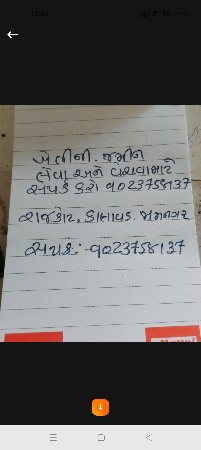 ખેતીની. જમીન
લેવા અને વેચવા માટે
સંપર્ક કરો 9023758137
રાજકોટ, કાલાવડ. જામનગર
સંપર્ક:- 9023758137